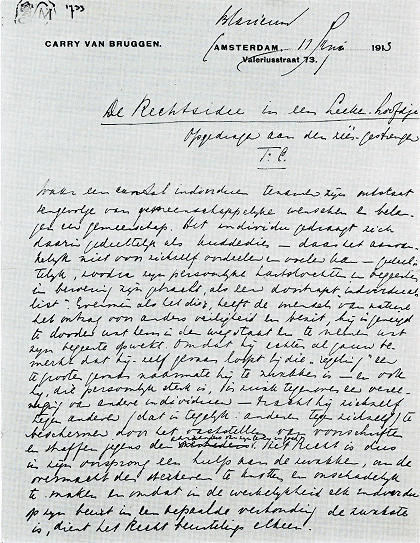 Blaricum
CARRY VAN BRUGGEN. AMSTERDAM, 11 Juni 1913
Valeriusstraat 73.
De Rechtsidee in een Leeke-hoofdje
Opgedragen aan den
T. E.
Waar een aantal individuen tezamen zijn ontstaat
tengevolge van gemeenschappelijke wenschen en belan-
gen een gemeenschap. Het individu gedraagt zich
daarin gedeeltelijk als kuddedier — daar het aanvan-
kelijk niet voor zichzelf oordeelen en voelen kan — gedeel-
telijk, zoodra zijn persoonlijke hartstochten en begeerten
in beroering zijn gebracht, als een doortrapt individua-
list. Evenmin als het dier, heeft de mensch van nature
het ontzag voor anders veiligheid en bezit, hij is geneigd
te dooden wat hem in den weg staat en te nemen wat
zijn begeerte opwekt. Omdat hij echten
merkt dat hij-zelf gevaar loopt bij die "regeling" een
te grooter gevaar naarmate hij zwakker is — en ook
hij, die persoonlijk sterk is, is zwak tegenover een veree-
niging van andere individuen — tracht hij zichzelf
tegen anderen (dat is tegelijk: anderen tegen zichzelf) te
beschermen door het vaststellen van voorschriften
en straffen jegens de Het Recht is dus
in zijn oorsprong een hulp aan de zwakken, om de
overmacht der sterkeren te and onschadelijk
te maken en omdat in de werkelijkheid elk individu
op zijn beurt in een bepaalde verhouding de zwakste
is, dient het Recht beurtelings elkeen.